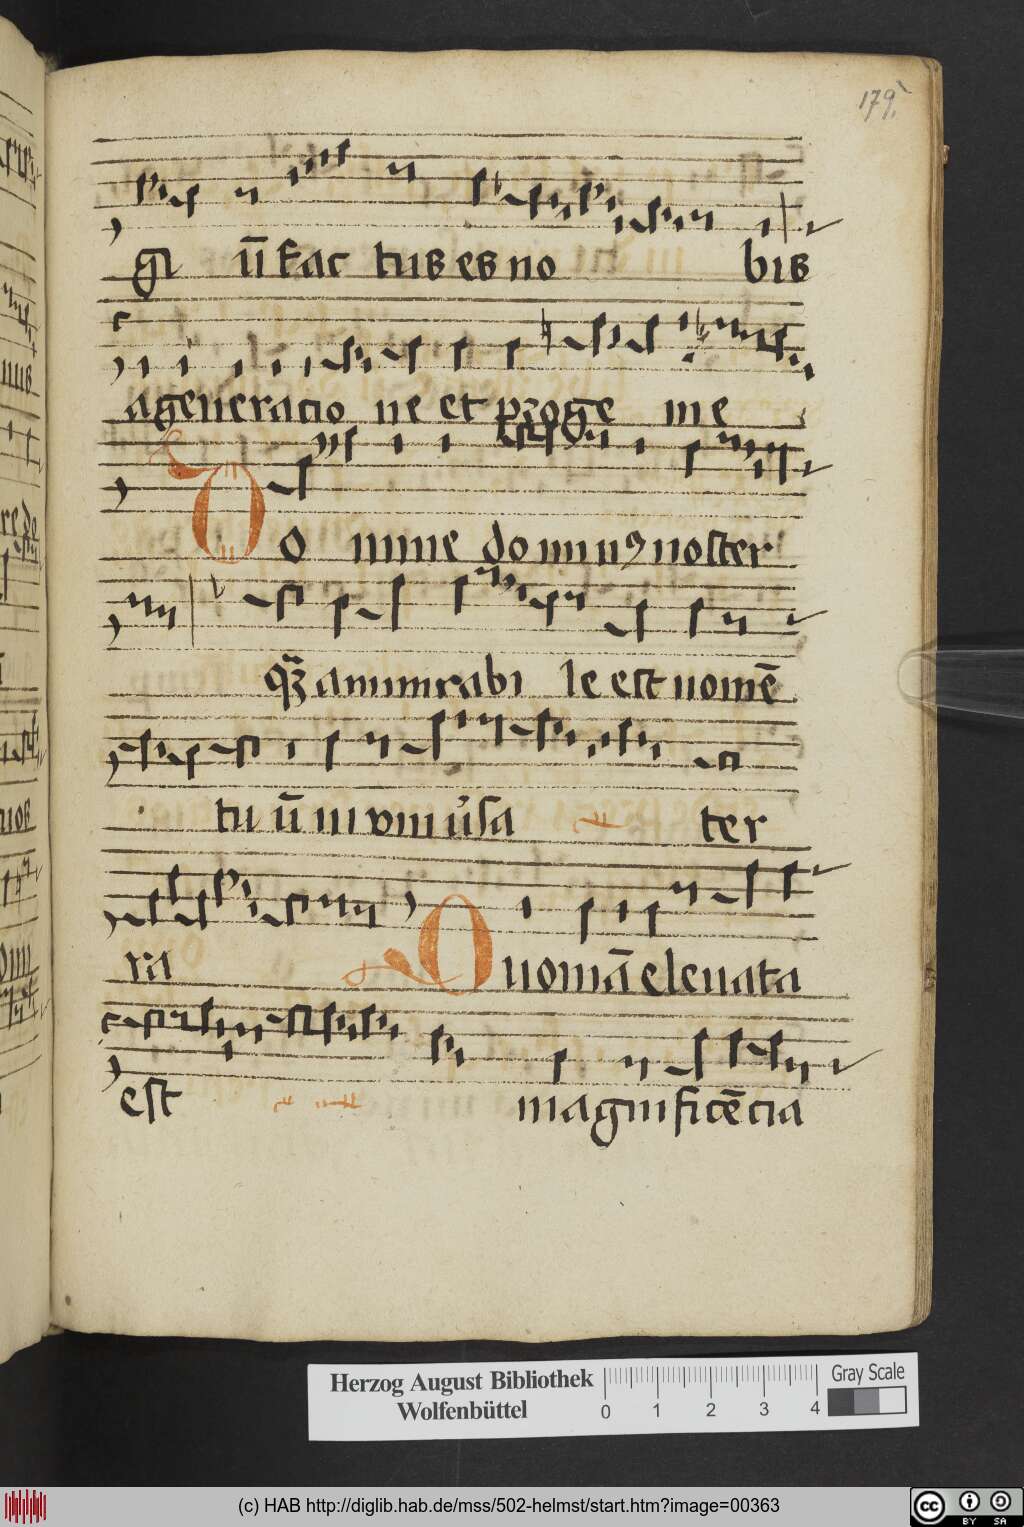 179.
gi ū fac tus es no bis
a generacio ne et ꝓ ge̅ me
Do mine do min ꝰ noster
qꝫ amimrabi le est nomē
tu ū in vniu̓sa ter
ra Quomā eleuata
est magnificēcia
Herzog August Bibliothek
Wolfenbüttel
0 1 2 3 4
Gray Scale
(c) HAB http://diglib.hab.de/mss/502-helmst/start.htm?image=00363
cc BY SA